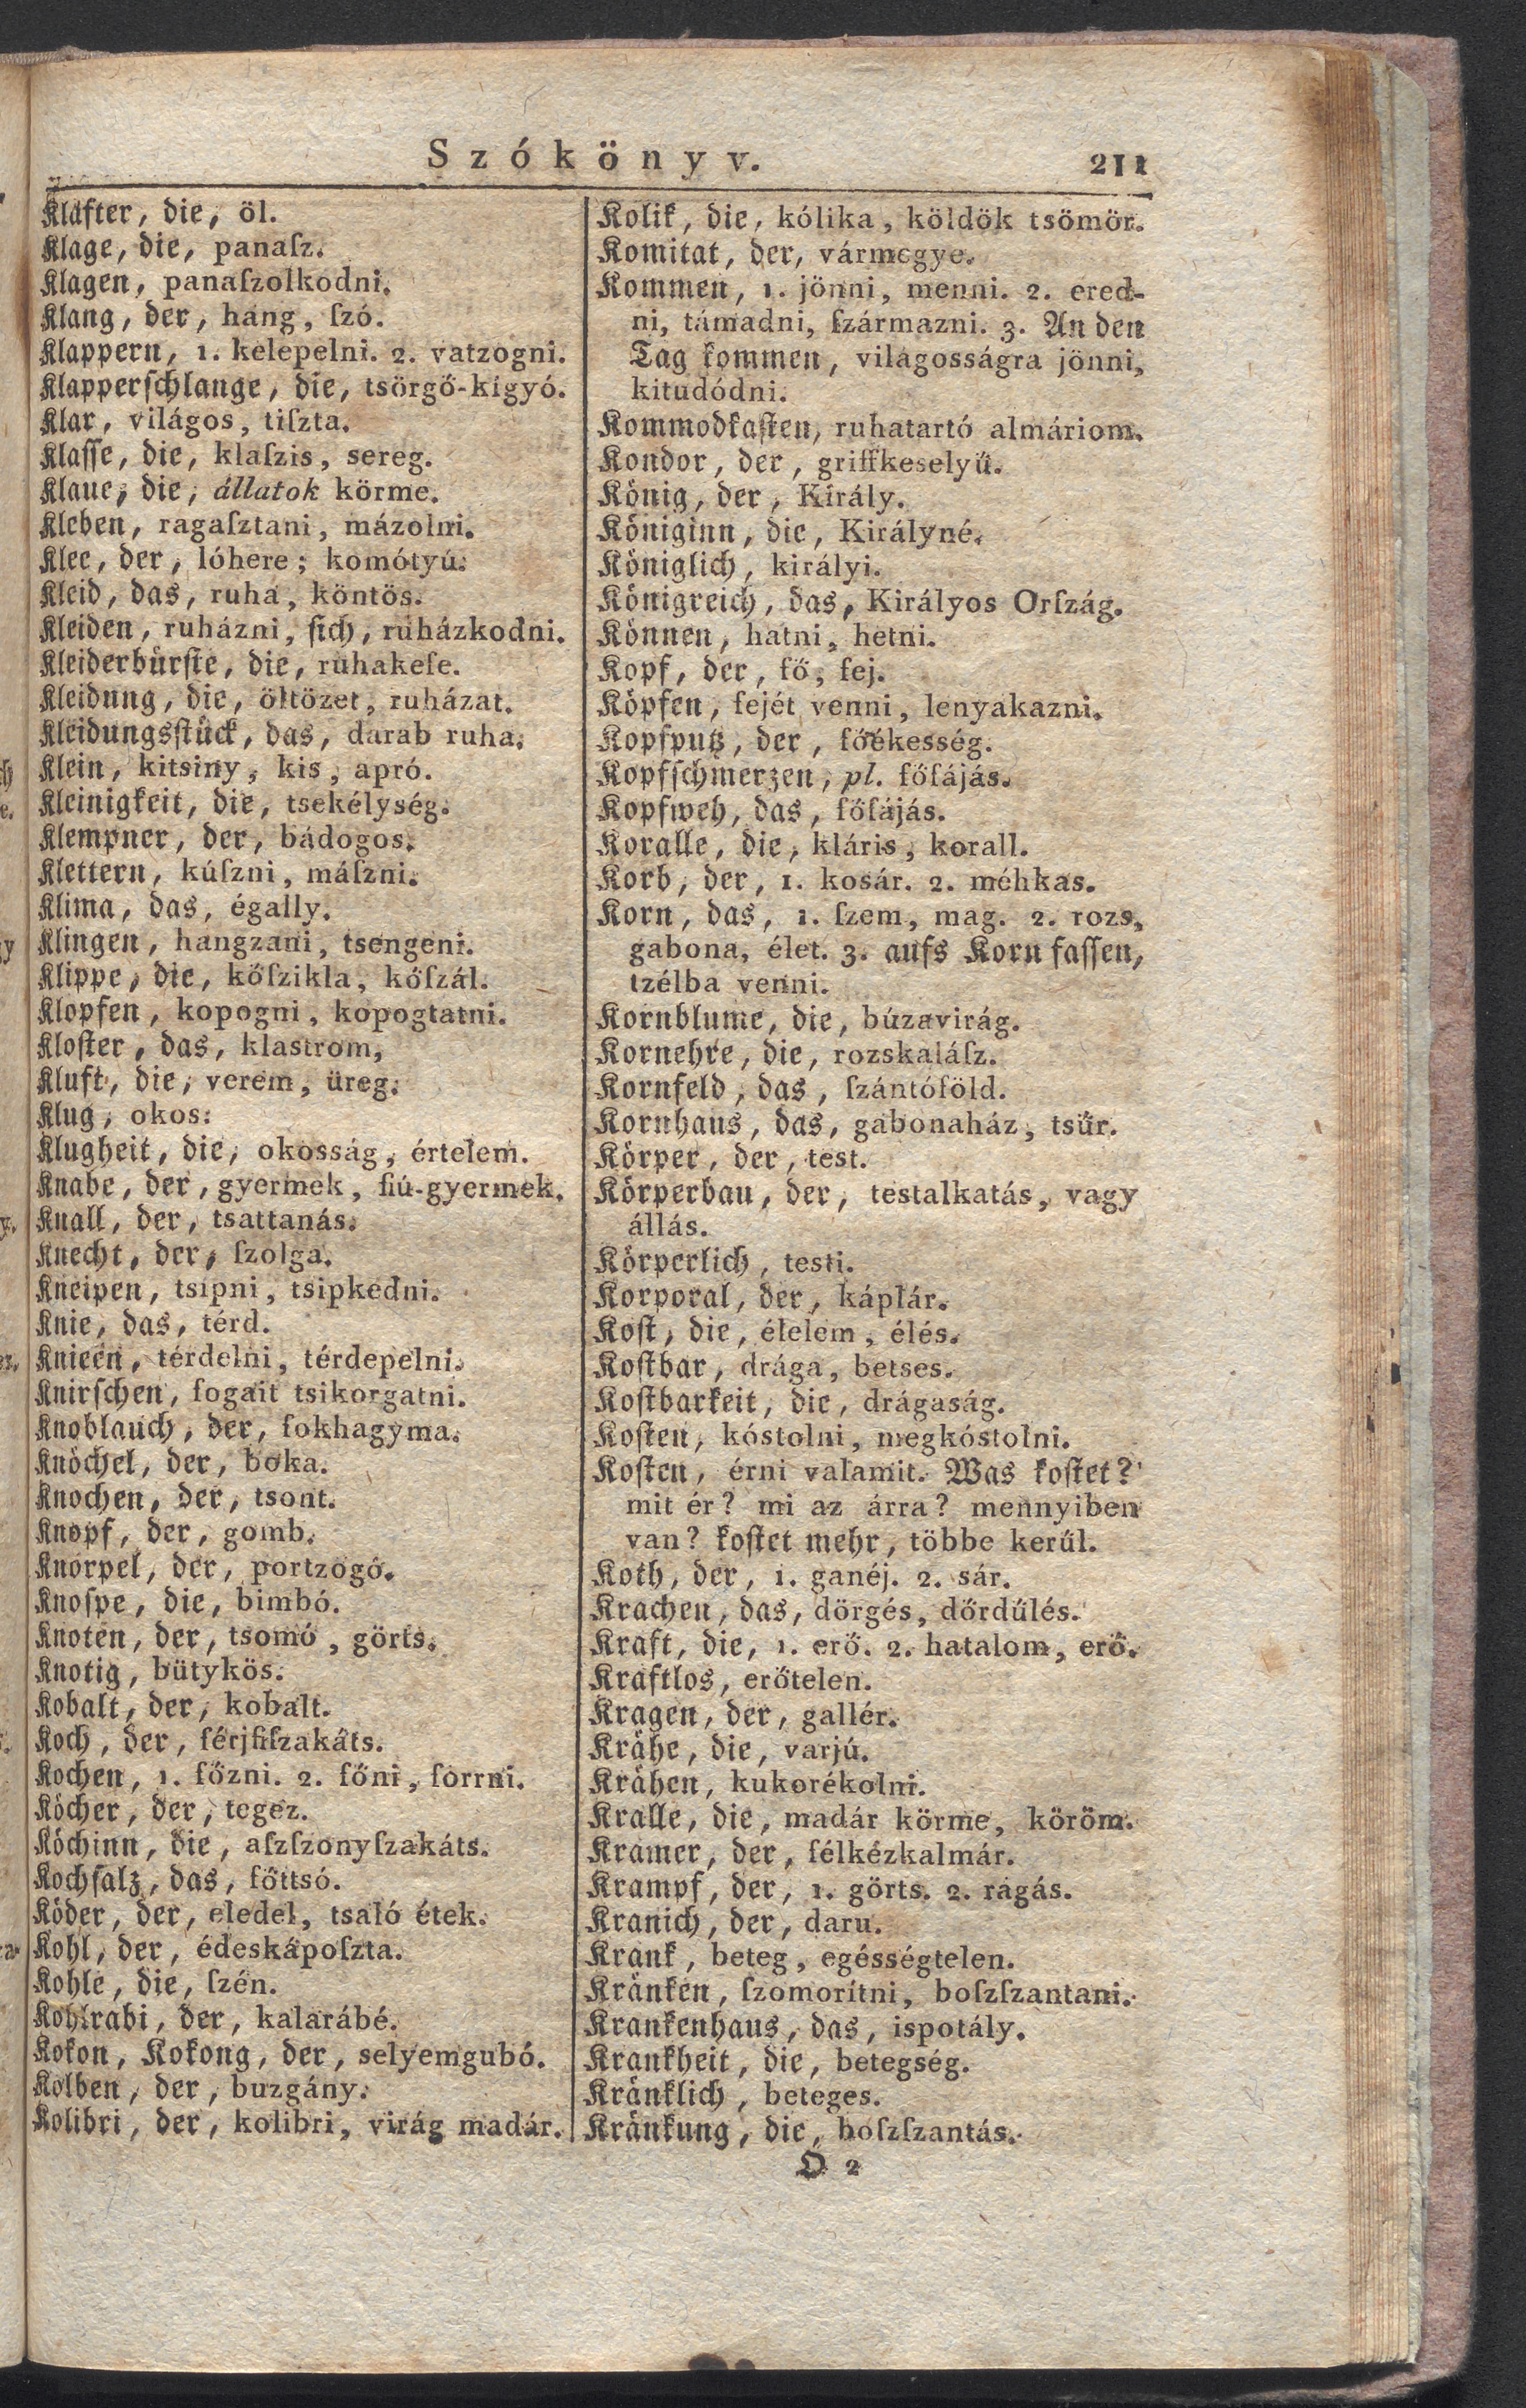 Szókönyv. 211
Klafter, die, öl.
Klage, die, panaſz.
Klagen, panaſzolkodni.
Klang, der, hang, ſzó.
Klappern, 1. kelepelni. 2. vatzogni.
Klapperſchlange, die, tsörgő-kígyó.
Klar, világos, tiſzta.
Klaſſe, die, klaſzis, sereg.
Klaue, die, állatok körme.
Kleben, ragaſztani, mázolni.
Klee, der, lóhere; komótyú.
Kleid, das, ruha, köntös.
Kleiden, ruházni, ſich, ruházkodni.
Kleiderbürſte, die, ruhakefe.
Kleidung, die, öltözet, ruházat.
Kleidungsſtück, das, darab ruha.
Klein, kitsiny, kis, apró.
Kleinigkeit, die, tsekélység.
Klempner, der, bádogos.
Klettern, kúſzni, máſzni.
Klima, das, égally.
Klingen, hangzani, tsengeni.
Klippe, die, kőſzikla, kőſzál.
Klopfen, kopogni, kopogtatni.
Kloſter, das, klastrom,
Kluft, die, verem, üreg.
Klug, okos.
Klugheit, die, okosság, értelem.
Knabe, der, gyermek, fiú-gyermek.
Knall, der, tsattanás.
Knecht, der, ſzolga.
Kneipen, tsípni, tsipkedni.
Knie, das, térd.
Knieen, térdelni, térdepelni.
Knirſchen, fogait tsikorgatni.
Knoblauch, der, fokhagyma.
Knöchel, der, boka.
Knochen, der, tsont.
Knopf, der, gomb.
Knorpel, der, portzogó.
Knoſpe, die, bimbó.
Knoten, der, tsomó, görts.
Knotig, bütykös.
Kobalt, der, kobalt.
Koch, der, férjfiſzakáts.
Kochen, 1. főzni. 2. főni, forrni.
Köcher, der, tegez.
Köchinn, die, aſzſzonyſzakáts.
Kochſalz, das, főttsó.
Köder, der, eledel, tsaló étek.
Kohl, der, édeskápoſzta.
Kohle, die, ſzén.
Kohlrabi, der, kalarábé.
Kokon, Kokong, der, selyemgubó.
Kolben, der, buzgány.
Kolibri, der, kolibri, virág madár.
Kolik, die, kólika, köldök tsömör.
Komitat, der, vármegye.
Kommen, 1. jönni, menni. 2. ered-
ni, támadni, ſzármazni. 3. An den
Tag kommen, világosságra jönni,
kitudódni.
Kommodkaſten, ruhatartó almáriom.
Kondor, der, griffkeselyű.
König, der, Király.
Königinn, die, Királyné.
Königlich, királyi.
Königreich, das, Királyos Orſzág.
Können, hatni, hetni.
Kopf, der, fő, fej.
Köpfen, fejét venni, lenyakazni.
Kopfputz, der, főékesség.
Kopfſchmerzen, pl. főfájás.
Kopfweh, das, főfájás.
Koralle, die, kláris, korall.
Korb, der, 1. kosár. 2. méhkas.
Korn, das, 1. ſzem, mag. 2. rozs,
gabona, élet. 3. aufs Korn faſſen,
tzélba venni.
Kornblume, die, búzavirág.
Kornehre, die, rozskaláſz.
Kornfeld, das, ſzántóföld.
Kornhaus, das, gabonaház, tsűr.
Körper, der, test.
Körperbau, der, testalkatás, vagy
állás.
Körperlich, testi.
Korporal, der, káplár.
Koſt, die, élelem, élés.
Koſtbar, drága, betses.
Koſtbarkeit, die, drágaság.
Koſten, kóstolni, megkóstolni.
Koſten, érni valamit. Was koſtet?
mit ér? mi az árra? mennyiben
van? koſtet mehr, többe kerűl.
Koth, der, 1. ganéj. 2. sár.
Krachen, das, dörgés, dördűlés.
Kraft, die, 1. erő. 2. hatalom, erő.
Kraftlos, erőtelen.
Kragen, der, gallér.
Krähe, die, varjú.
Krähen, kukorékolni.
Kralle, die, madár körme, köröm.
Kramer, der, félkézkalmár.
Krampf, der, 1. görts. 2. rágás.
Kranich, der, daru.
Krank, beteg, egésségtelen.
Kränken, ſzomorítni, boſzſzantani.
Krankenhaus, das, ispotály.
Krankheit, die, betegség.
Kränklich, beteges.
Kränkung, die, boſzſzantás.
O 2